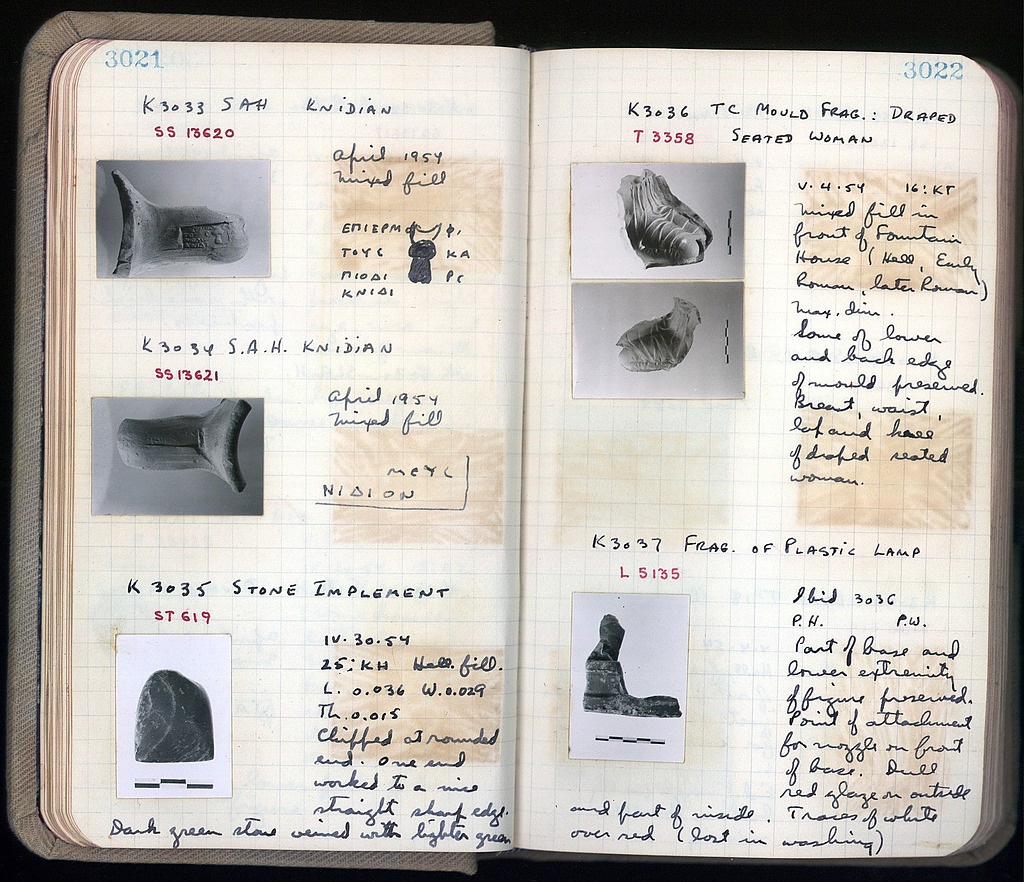 3021
K 3033 SAH KNIDIAN
SS 13620
April 1954
mixed fill
ΕΠΙΕΡΜΟ Φι
ΤΟΥC ΚΑ
ΠΙΟΔΙ ΡC
ΚΝΙΔΙ
K 3034 S.A.H. KNIDIAN
SS 13621
April 1954
mixed fill
ΜΕΥC
ΝΙΔΙΟΝ
K 3035 STONE IMPLEMENT
ST 619
IV.30.54
25:KH Hell. fill.
L. 0.036 W. 0.029
Th. 0.015
Chipped at rounded
end. One end
worked to a nice
straight sharp edge.
Dark green stone veined with lighter green
3022
K 3036 TC MOULD FRAG.: DRAPED
T 3358 SEATED WOMAN
V.4.54 16:KT
Mixed fill in
front of Fountain
House (Hell, Early
Roman, later Roman)
Max. dim.
Some of lower
and back edge
of mould preserved.
Breast, waist,
lap and knee
of draped seated
woman.
K 3037 FRAG. OF PLASTIC LAMP
L 5135
Ibid 3036
P.H. P.W.
Part of base and
lower extremity
of figure preserved.
Point of attachment
for nozzle on front
of base. Dull
red glaze on outside
and part of inside. Traces of white
over red (lost in washing)